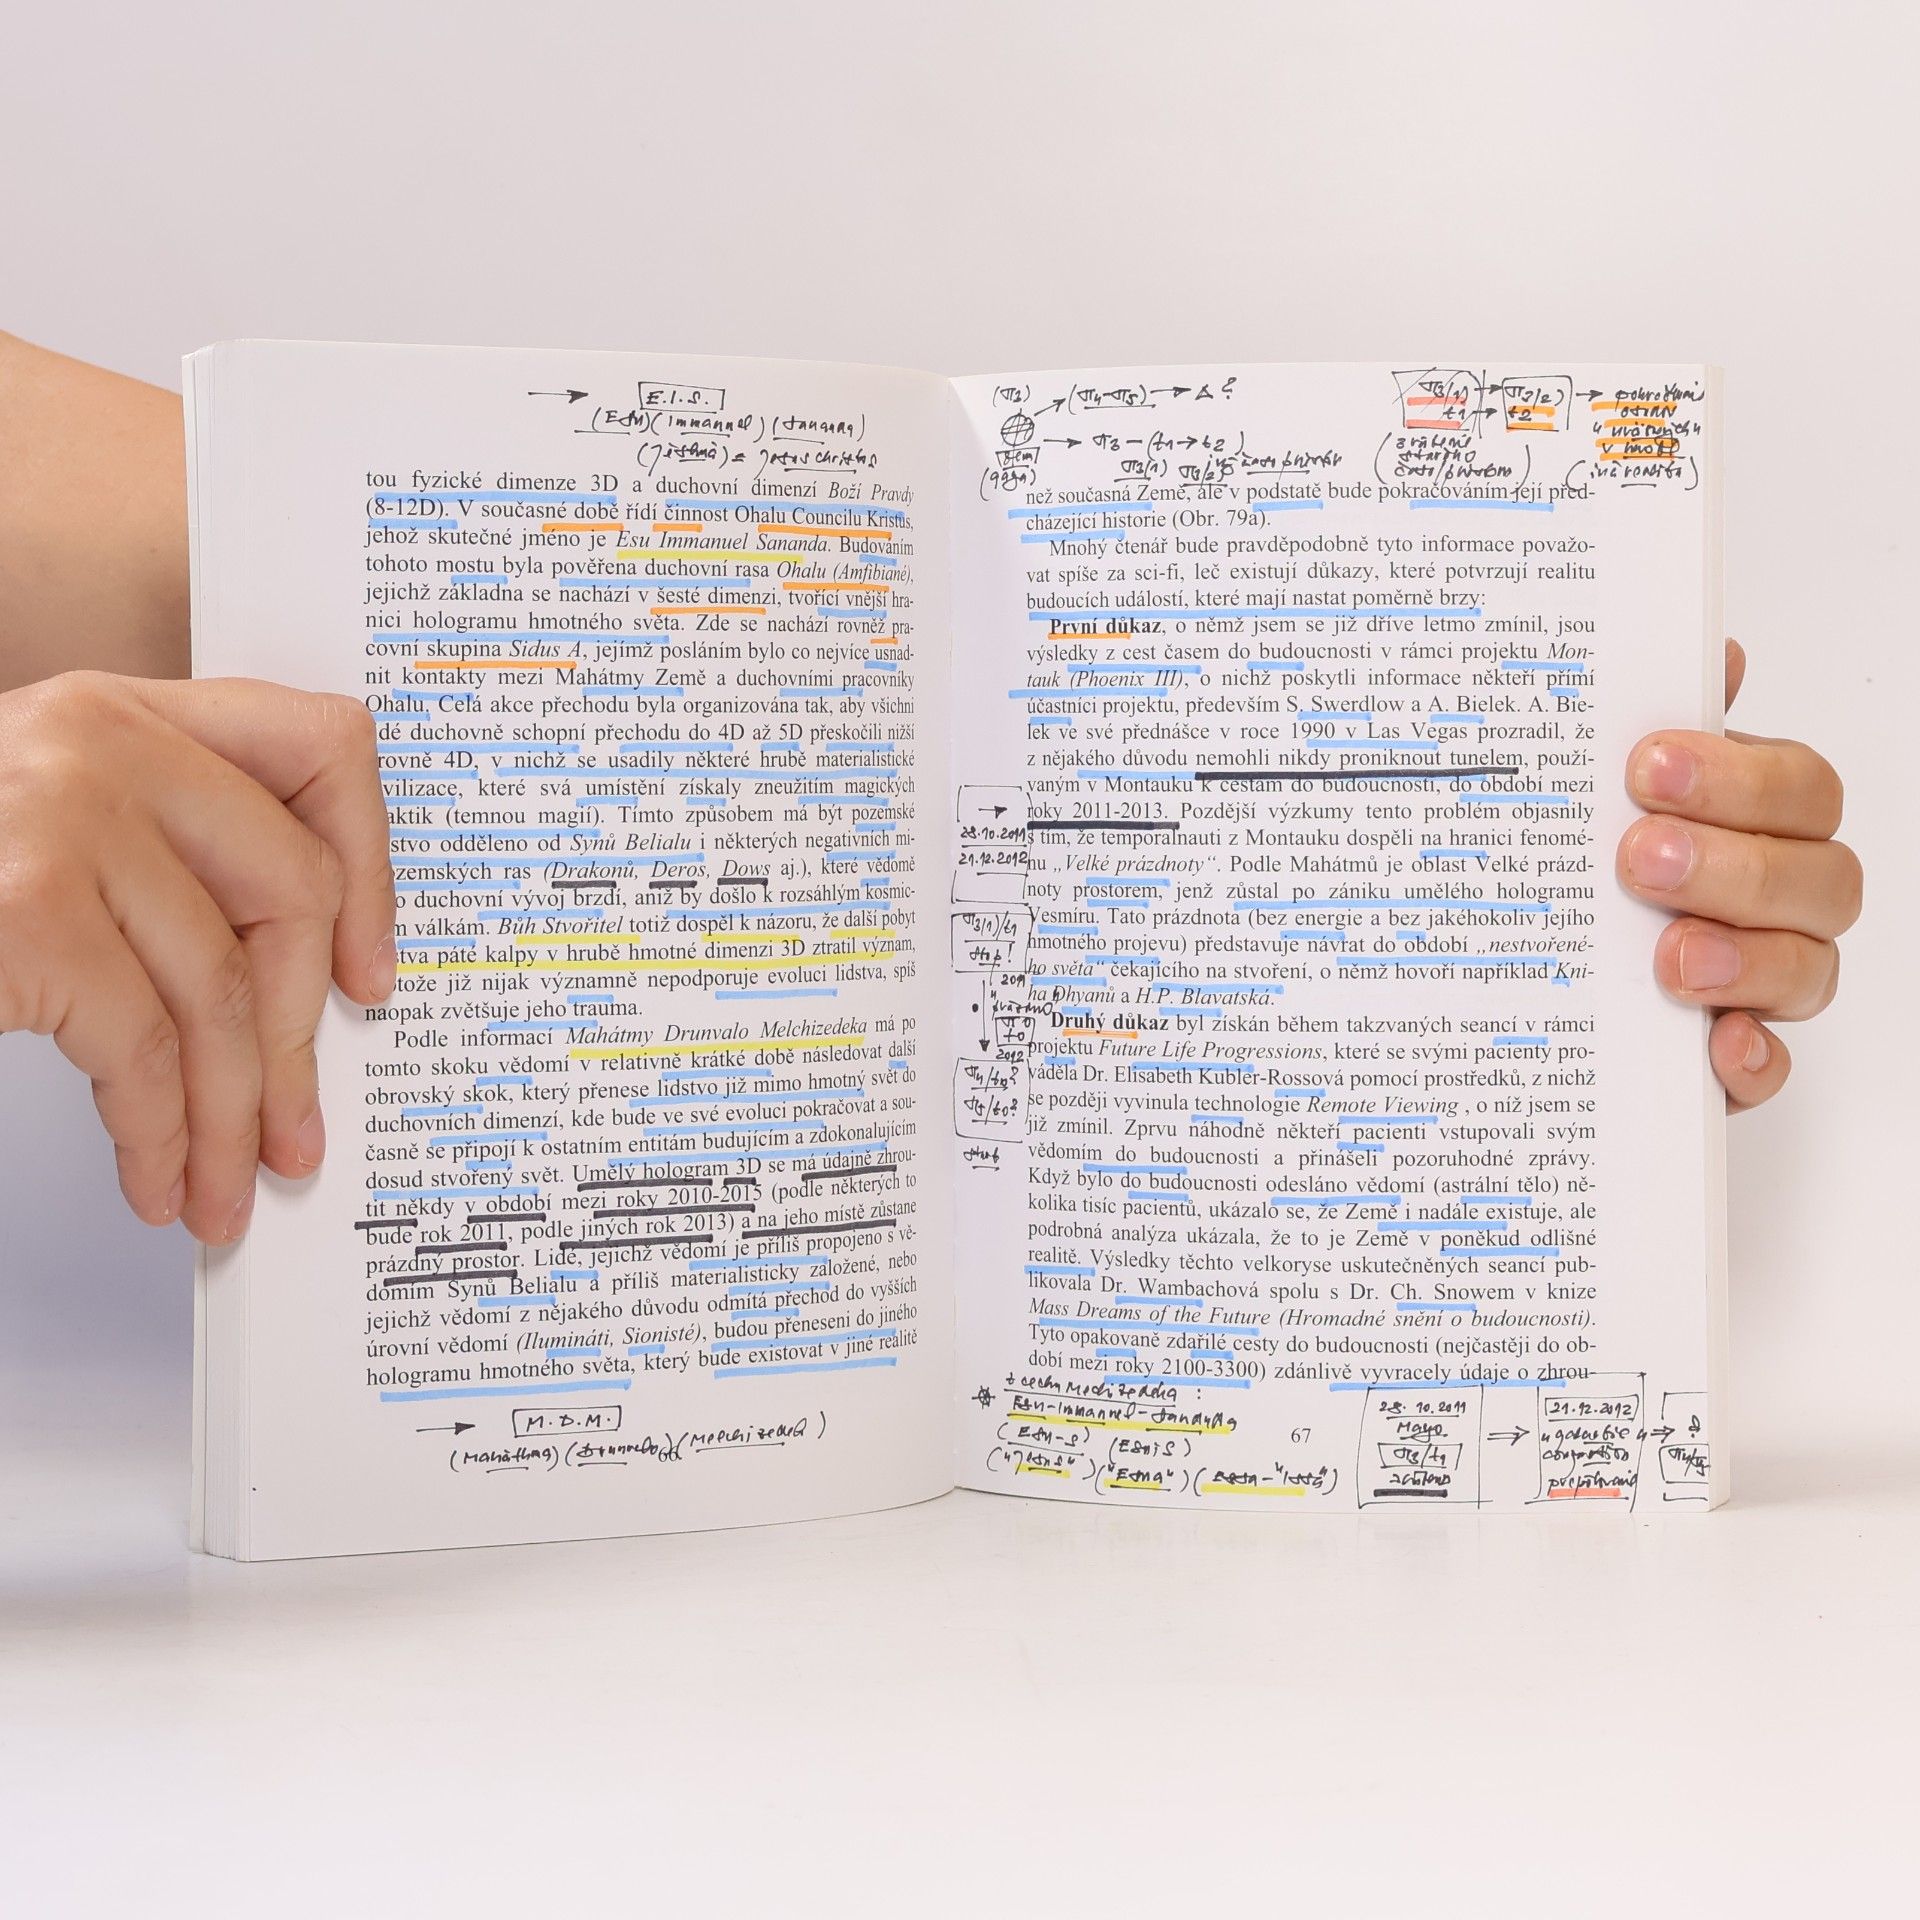 E.I.S.
(Esu) (Immanuel) (Sananda)
(Ješuа) = Jesus Christus
tou fyzické dimenze 3D a duchovní dimenzí Boží Pravdy
(8-12D). V současné době řídí činnost Ohalu Councilu Kristus,
jehož skutečné jméno je Esu Immanuel Sananda. Budováním
tohoto mostu byla pověřena duchovní rasa Ohalu (Amfibiané),
jejichž základna se nachází v šesté dimenzi, tvořící vnější hra-
nici hologramu hmotného světa. Zde se nachází rovněž pra-
covní skupina Sidus A, jejímž posláním bylo co nejvíce usnad-
nit kontakty mezi Mahátmy Země a duchovními pracovníky
Ohalu. Celá akce přechodu byla organizována tak, aby všichni
dé duchovně schopní přechodu do 4D až 5D přeskočili nižší
rovně 4D, v nichž se usadily některé hrubě materialistické
vilizace, které svá umístění získaly zneužitím magických
aktik (temnou magií). Tímto způsobem má být pozemské
stvo odděleno od Synů Belialu i některých negativních mi-
zemských ras (Drakonů, Deros, Dows aj.), které vědomě
o duchovní vývoj brzdí, aniž by došlo k rozsáhlým kosmic-
m válkám. Bůh Stvořitel totiž dospěl k názoru, že další pobyt
stva páté kalpy v hrubě hmotné dimenzi 3D ztratil význam,
tože již nijak významně nepodporuje evoluci lidstva, spíš
naopak zvětšuje jeho trauma.
Podle informací Mahátmy Drunvalo Melchizedeka má po
tomto skoku vědomí v relativně krátké době následovat další
obrovský skok, který přenese lidstvo již mimo hmotný svět do
duchovních dimenzí, kde bude ve své evoluci pokračovat a sou-
časně se připojí k ostatním entitám budujícím a zdokonalujícím
dosud stvořený svět. Umělý hologram 3D se má údajně zhrou-
tit někdy v období mezi roky 2010-2015 (podle některých to
bude rok 2011, podle jiných rok 2013) a na jeho místě zůstane
prázdný prostor. Lidé, jejichž vědomí je příliš propojeno s vě-
domím Synů Belialu a příliš materialisticky založené, nebo
jejichž vědomí z nějakého důvodu odmítá přechod do vyšších
úrovní vědomí (Ilumináti, Sionisté), budou přeneseni do jiného
hologramu hmotného světa, který bude existovat v jiné realitě
M.D.M.
(Mahátma) (Drunvalo) (Melchizedek)
66
než současná Země, ale v podstatě bude pokračováním její před-
cházející historie (Obr. 79a).
Mnohý čtenář bude pravděpodobně tyto informace považo-
vat spíše za sci-fi, leč existují důkazy, které potvrzují realitu
budoucích událostí, které mají nastat poměrně brzy:
První důkaz, o němž jsem se již dříve letmo zmínil, jsou
výsledky z cest časem do budoucnosti v rámci projektu Mon-
tauk (Phoenix III), o nichž poskytli informace někteří přímí
účastníci projektu, především S. Swerdlow a A. Bielek. A. Bie-
lek ve své přednášce v roce 1990 v Las Vegas prozradil, že
z nějakého důvodu nemohli nikdy proniknout tunelem, použí-
vaným v Montauku k cestám do budoucnosti, do období mezi
roky 2011-2013. Pozdější výzkumy tento problém objasnily
s tím, že temporalnauti z Montauku dospěli na hranici fenomé-
nu „Velké prázdnoty“. Podle Mahátmů je oblast Velké prázd-
noty prostorem, jenž zůstal po zániku umělého hologramu
Vesmíru. Tato prázdnota (bez energie a bez jakéhokoliv jejího
hmotného projevu) představuje návrat do období „nestvořené-
ho světa“ čekajícího na stvoření, o němž hovoří například Kni-
ha Dhyanů a H.P. Blavatská.
Druhý důkaz byl získán během takzvaných seancí v rámci
projektu Future Life Progressions, které se svými pacienty pro-
váděla Dr. Elisabeth Kubler-Rossová pomocí prostředků, z nichž
se později vyvinula technologie Remote Viewing , o níž jsem se
již zmínil. Zprvu náhodně někteří pacienti vstupovali svým
vědomím do budoucnosti a přinášeli pozoruhodné zprávy.
Když bylo do budoucnosti odesláno vědomí (astrální tělo) ně-
kolika tisíc pacientů, ukázalo se, že Země i nadále existuje, ale
podrobná analýza ukázala, že to je Země v poněkud odlišné
realitě. Výsledky těchto velkoryse uskutečněných seancí pub-
likovala Dr. Wambachová spolu s Dr. Ch. Snowem v knize
Mass Dreams of the Future (Hromadné snění o budoucnosti).
Tyto opakovaně zdařilé cesty do budoucnosti (nejčastěji do ob-
dobí mezi roky 2100-3300) zdánlivě vyvracely údaje o zhrou-
28.10.2011
21.12.2012
stop!
2011
2012
Esu-Immanuel-Sananda
(Esu-S) (EsuiS)
("Jesus")
67
28.10.2011
Mayo
21.12.2012